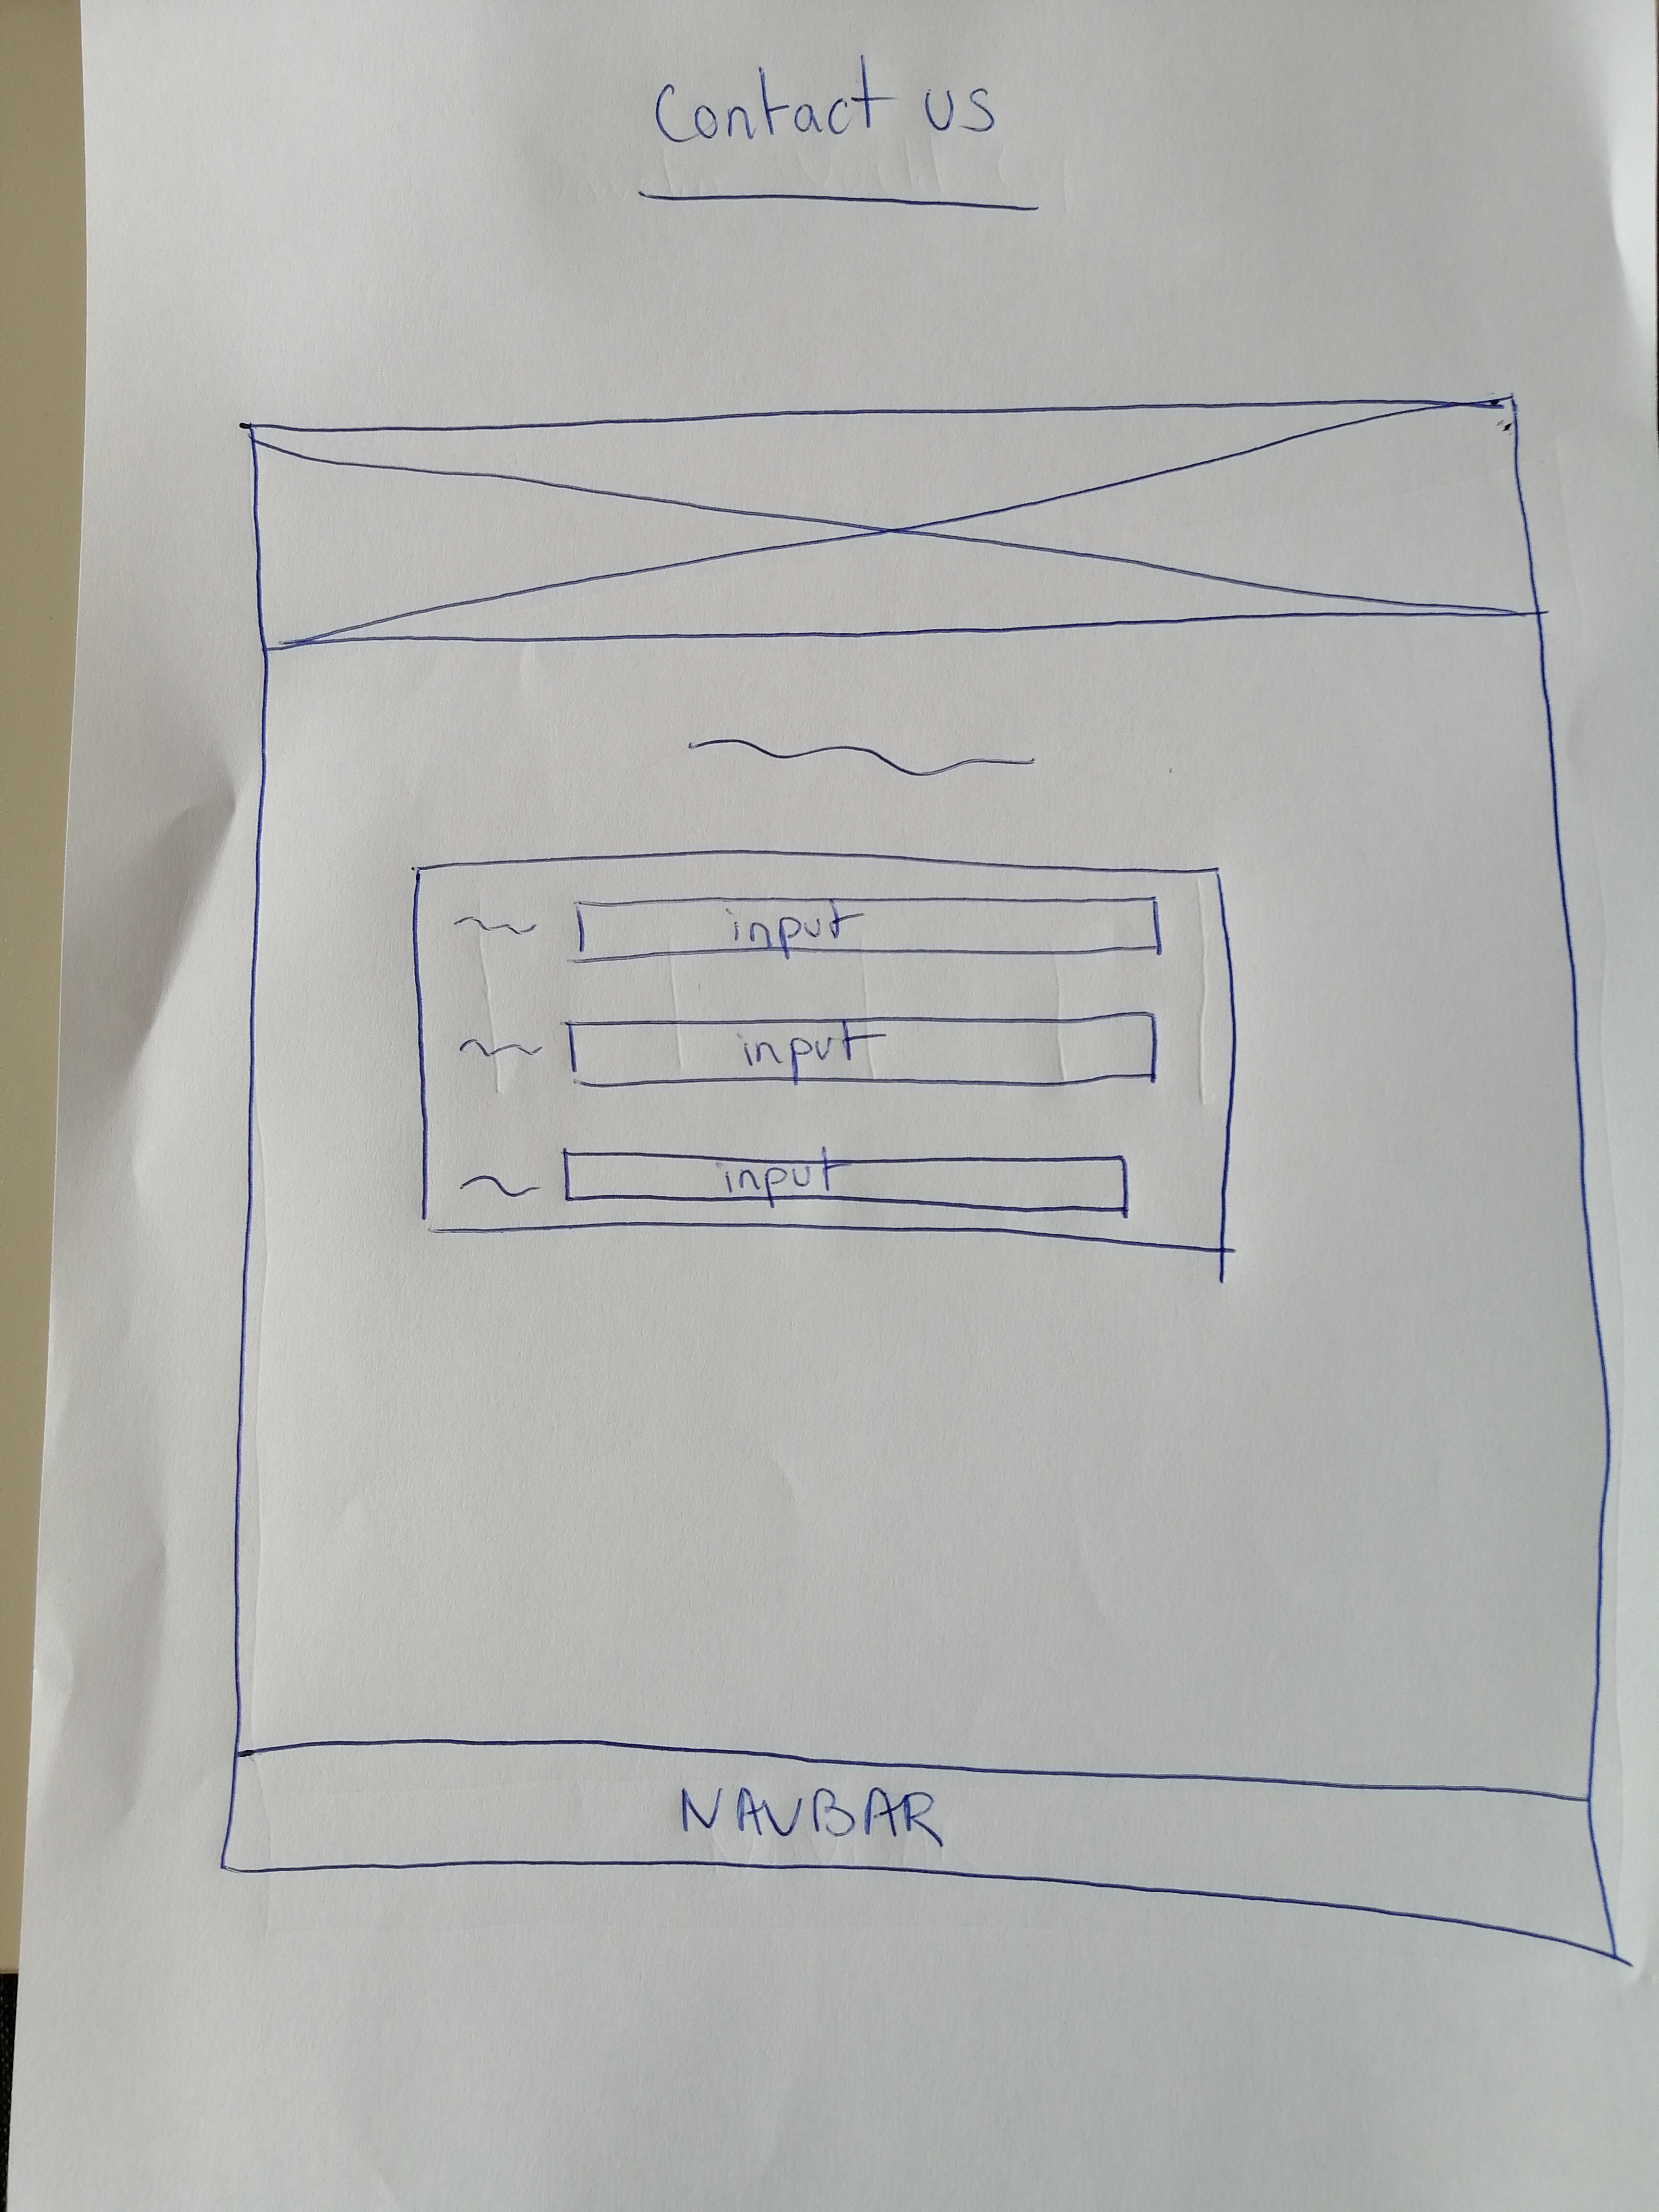 Contact us
input
input
input
NAVBAR